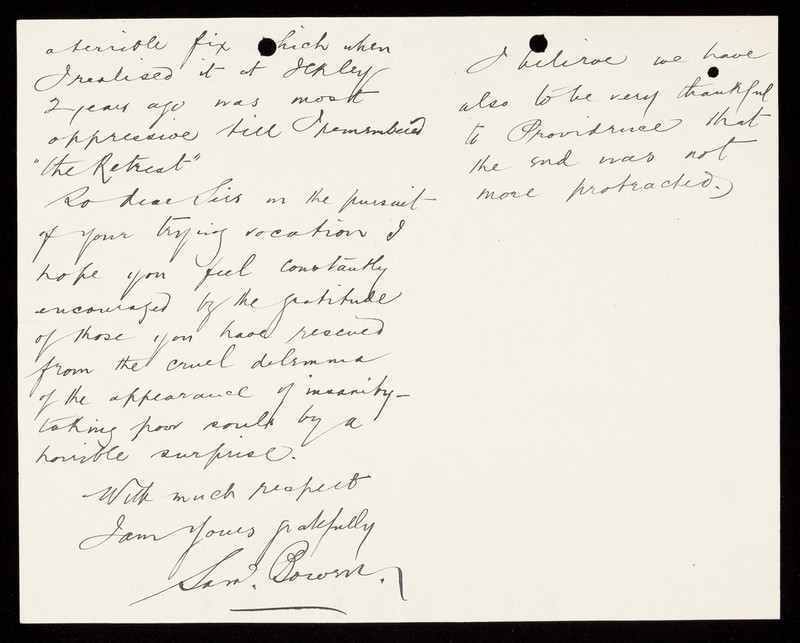 a terrible fix which when
I realised it at Ilkley
2 years ago was most
oppressive till I remembered
"the Retreat"
So dear Sirs in the pursuit
of your trying vocation I
hope you feel constantly
encouraged by the gratitude
of those you have rescued
from the cruel dilemma
of the appearance of insanity—
taking poor souls by a
horrible surprise.
With much respect
I am Yours gratefully
Saml. Bowen.
I believe we have
also to be very thankful
to Providence that
the end was not
more protracted.)